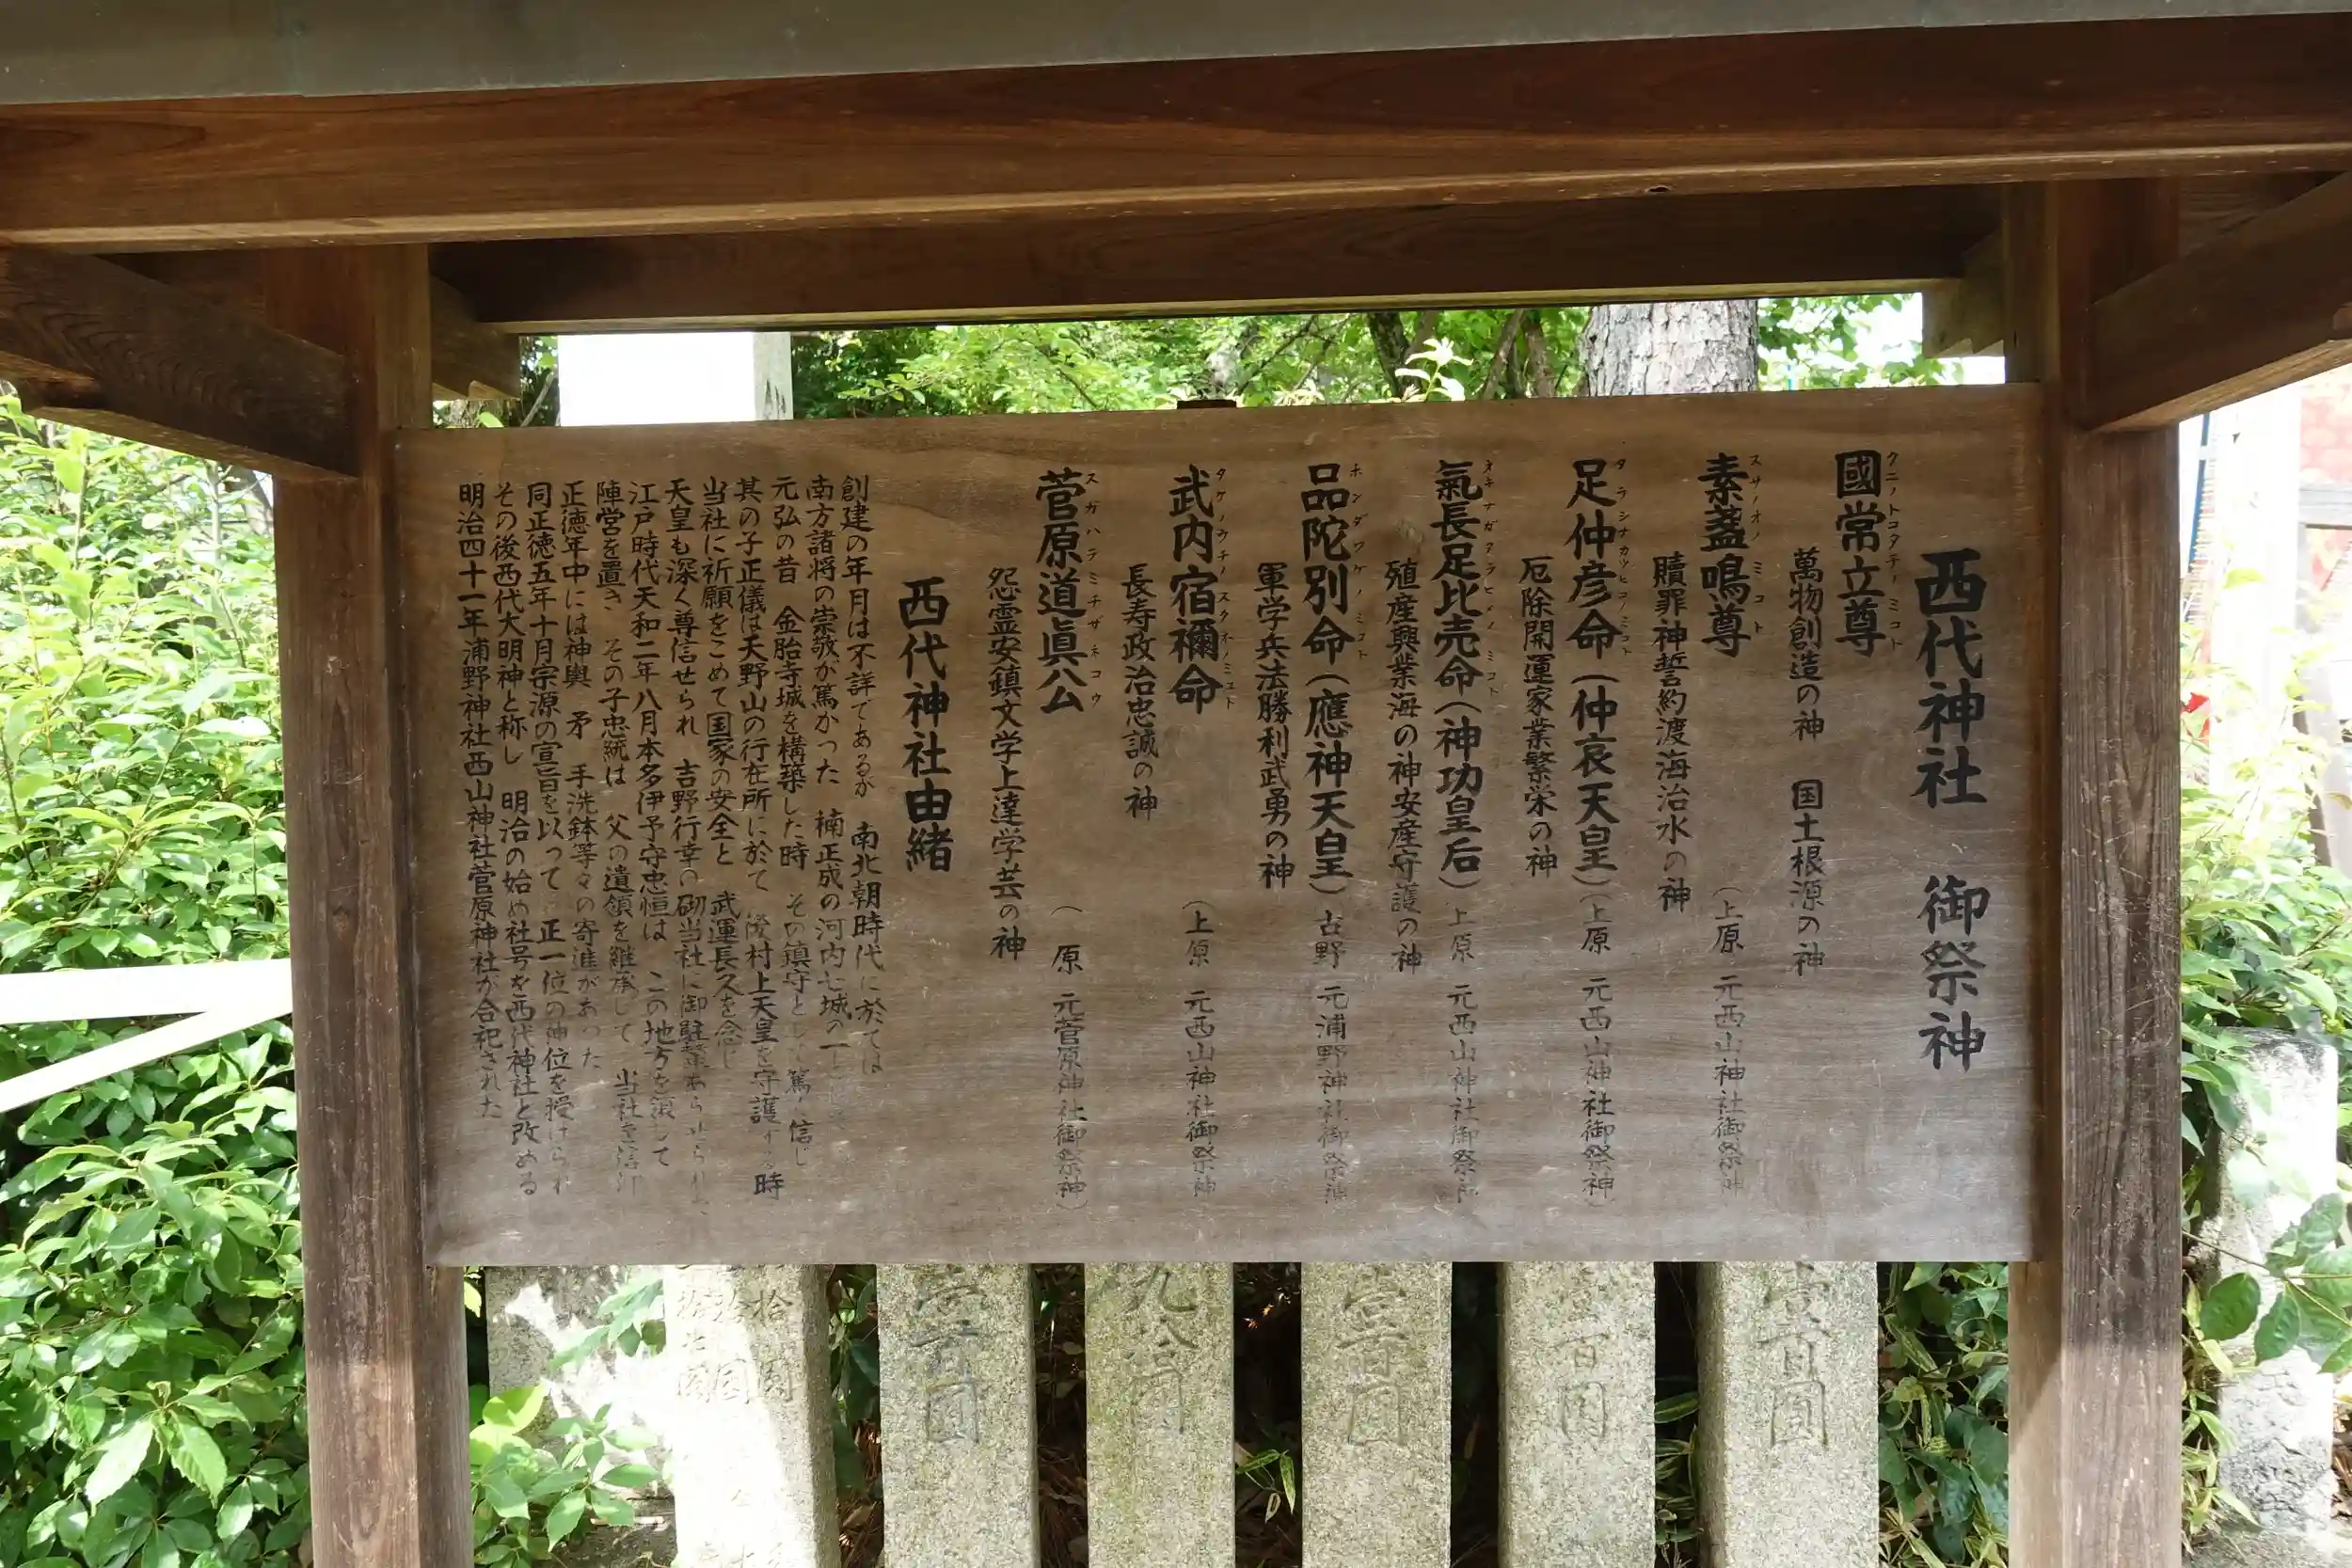 西代神社 御祭神
國常立尊
クニノトコタチノミコト
萬物創造の神 国土根源の神
素盞鳴尊
スサノオノミコト
(上原 元西山神社御祭神
贖罪神誓約渡海治水の神
足仲彦命(仲哀天皇)(上原 元西山神社御祭神)
タラシナカツヒコノミコト
厄除開運家業繁栄の神
氣長足比売命(神功皇后)上原 元西山神社御祭神
オキナガタラヒメノミコト
殖産興業海の神安産守護の神
品陀別命(應神天皇)古野 元浦野神社御祭神
ホンダワケノミコト
軍学兵法勝利武勇の神
武内宿禰命 (上原 元西山神社御祭神
タケノウチノスクネノミコト
長寿政治忠誠の神
菅原道眞公 (原 元菅原神社御祭神)
スガハラミチザネコウ
怨霊安鎮文学上達学芸の神
西代神社由緒
創建の年月は不詳であるが 南北朝時代に於ては
南方諸将の崇敬が篤かった 楠正成の河内七城の一
元弘の昔 金胎寺城を構築した時 その鎮守として篤く信じ
其の子正儀は天野山の行在所に於て 後村上天皇を守護する時
当社に祈願をこめて国家の安全と 武運長久を念じ
天皇も深く尊信せられ 吉野行幸の砌当社に御駐輦あらせられ
江戸時代天和二年八月本多伊予守忠恒は この地方を領して
陣営を置き その子忠統は 父の遺領を継承して 当社を信仰
正徳年中には神輿 矛 手洗鉢等々の寄進があった
同正徳五年十月宗源の宣旨を以って 正一位の神位を授けられ
その後西代大明神と称し 明治の始め社号を西代神社と改める
明治四十一年浦野神社西山神社菅原神社が合祀された
拾圓
拾圓
壹百圓
九拾圓
壹百圓
百圓
壹百圓